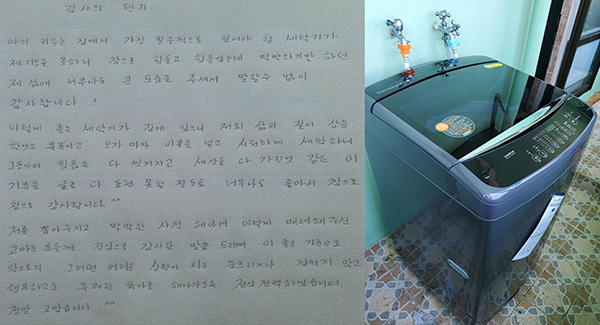 감사의 편지
아기 키우는 집에서 가장 필수적으로 있어야 할 세탁기가
제기능을 못하니 참으로 힘들고 힘들었는데 막막하기만 하던
제 삶에 너무나도 큰 도움을 주셔서 말할수 없이
감사합니다 !
이렇게 좋은 세탁기가 집에 있으니 저희 삶의 질이 상승
한것은 물론이고 오자 마자 이불을 넣고 시원하게 세탁하니
그동안의 힘듦은 다 씻겨지고 세상을 다 가진것 같은 이
기분을 글로 다 표현 못할 정도로 너무나도 좋아서 참으로
참으로 감사합니다 ^^
저를 뽑아주시고 막막한 사정 헤아려 이렇게 배려해주신
분들께 진심으로 감사한 말씀 드리며 이 좋은 기운으로
앞으로의 그어떤 어려운 상황이 와도 움츠리거나 겁먹지 않고
행복하고도 유쾌한 육아를 해나가도록 전심 전력하겠습니다
정말 고맙습니다 ^^